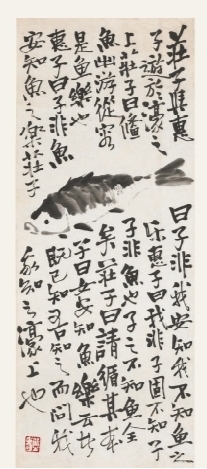 莊子與惠
子遊於濠之
上莊子曰儵
魚出游從容
是魚樂也
惠子曰子非魚
安知魚之樂莊子
曰子非我安知我不知魚之
乐惠子曰我非子固不知子
子非魚也子之不知魚全
矣莊子曰請循其本
子曰女安知魚樂云者
既已知吾知之而問我
我知之濠上也